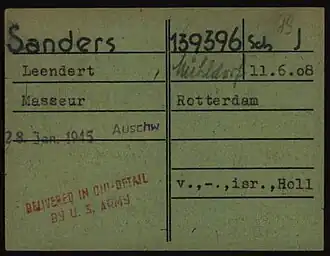 Sanders 139396 Sch J
Leendert, Mühldorf 11.6.08
Masseur Rotterdam
28. Jan. 1945 Auschw
v.,-.,isr.,Holl
DELIVERED IN
BY U. S. ARMY